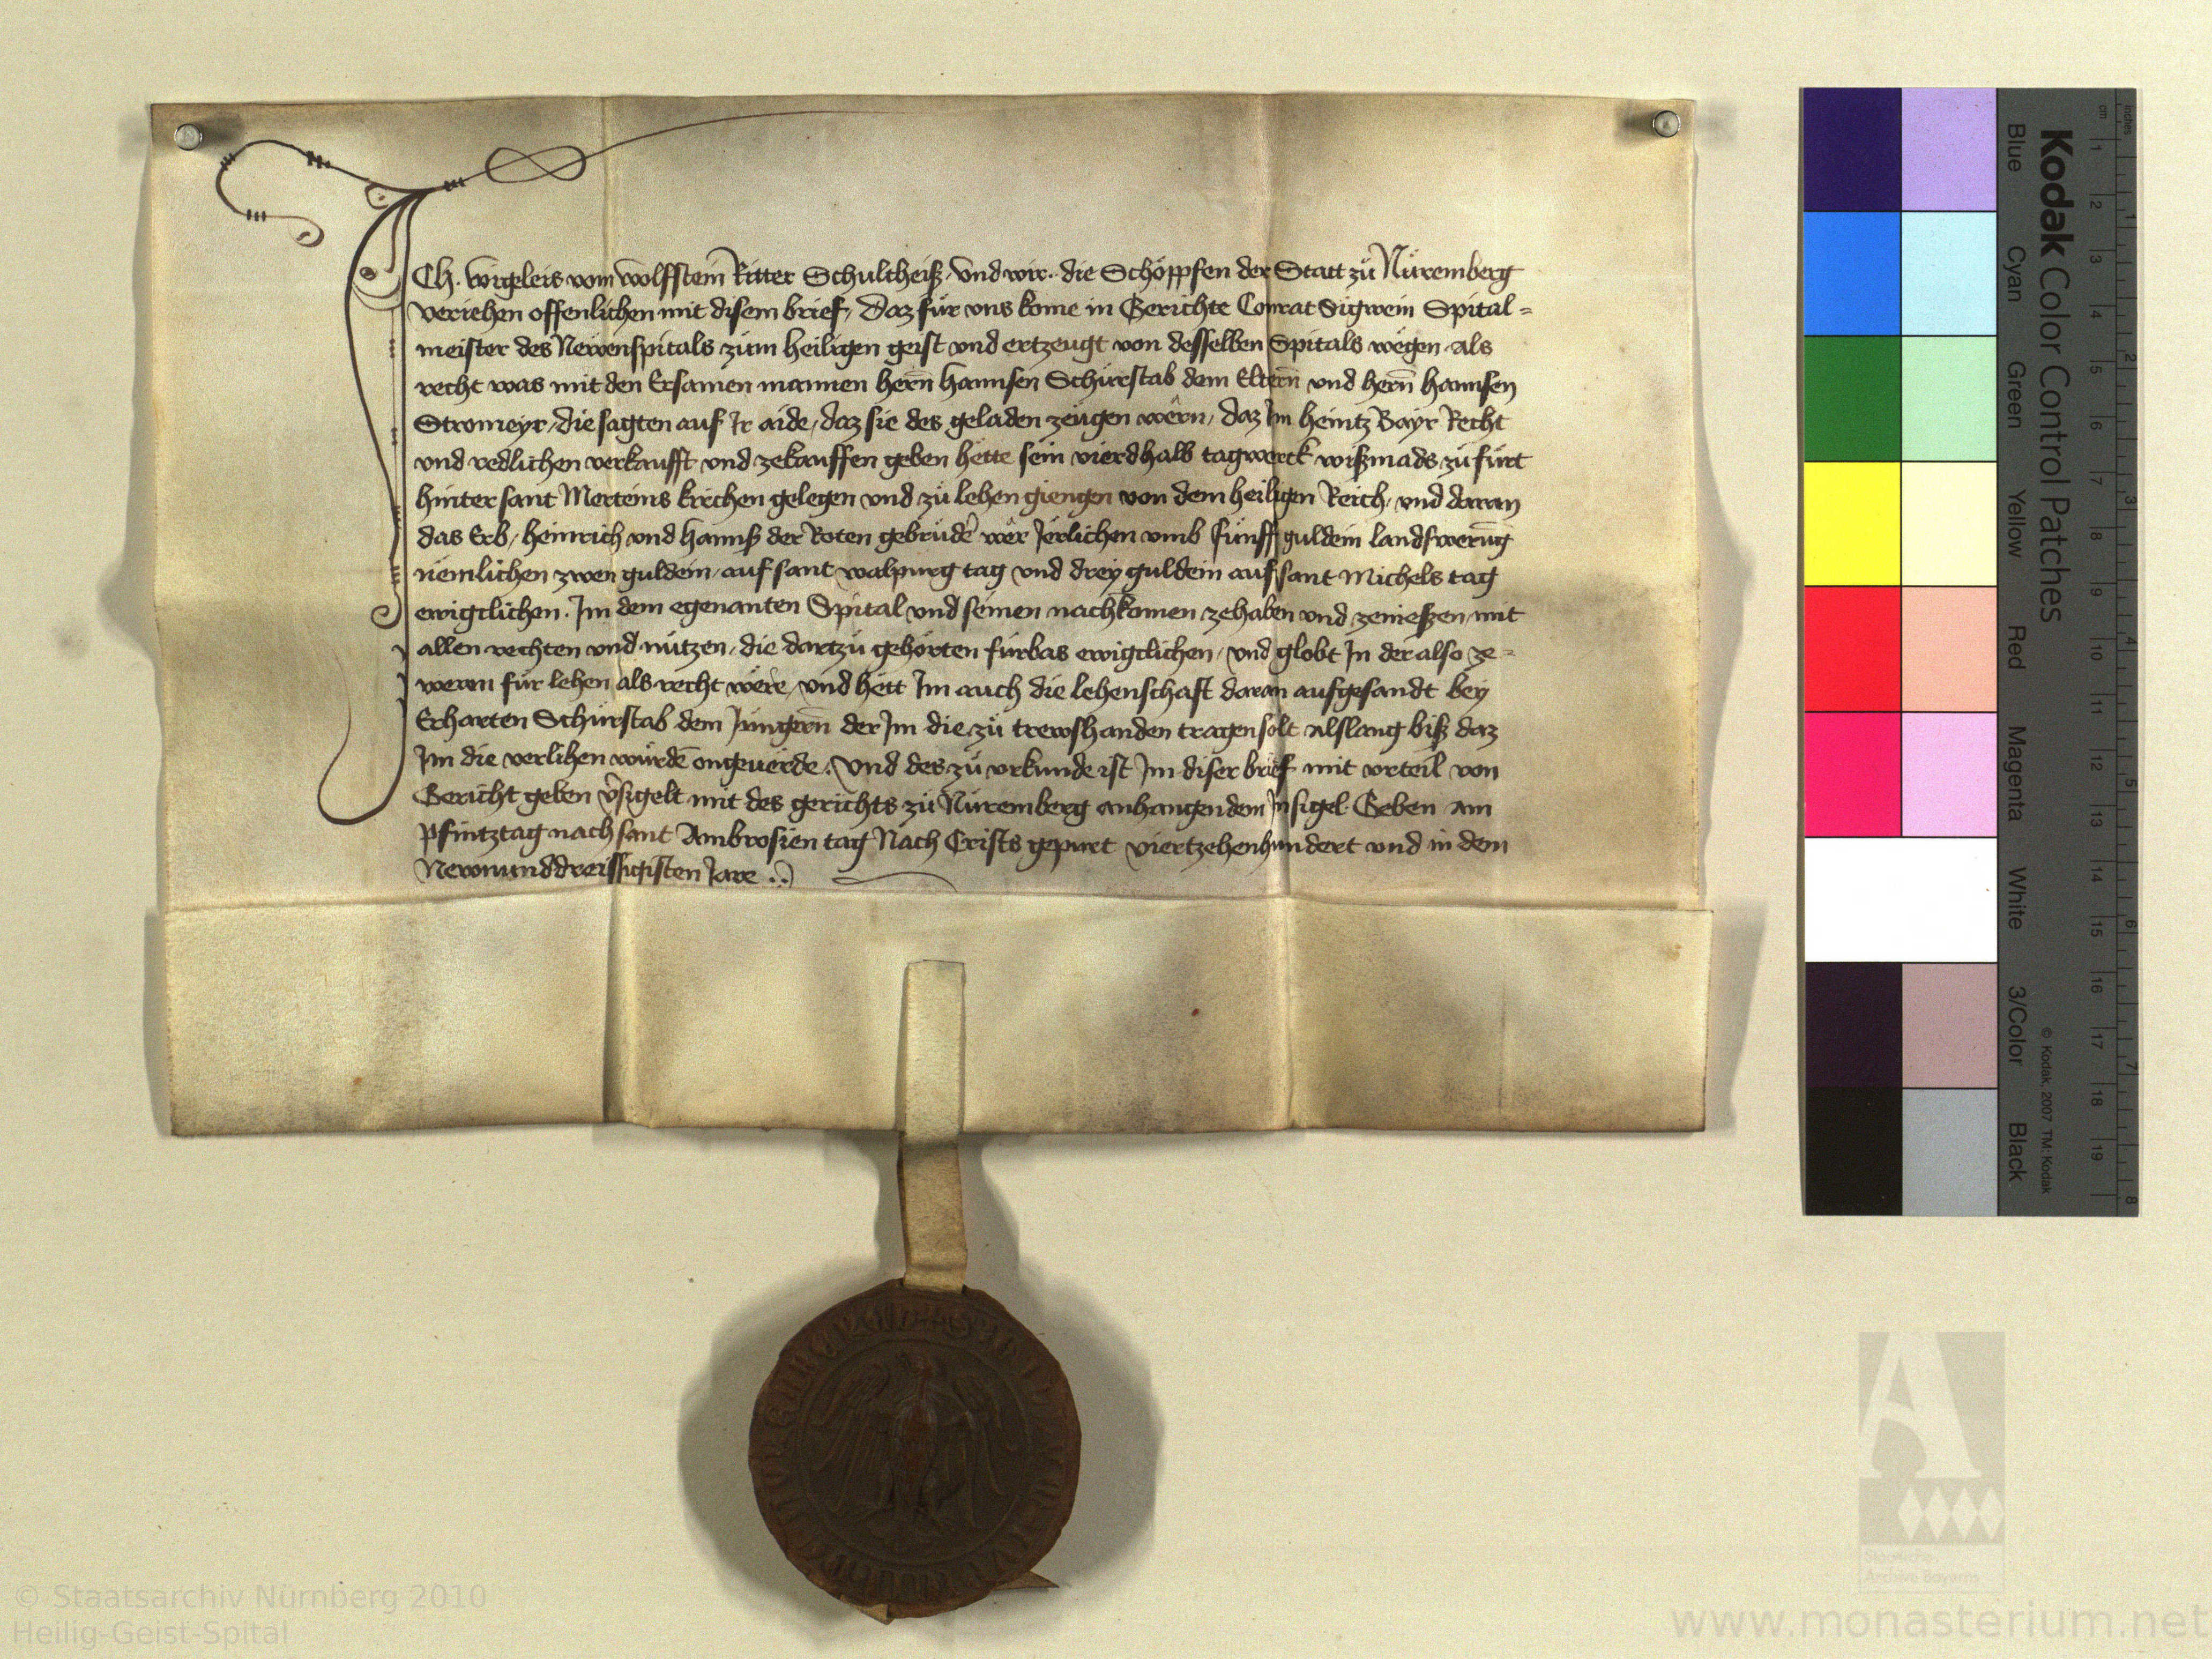 ICh. wigeleis vom wolfstein Ritter Schultheiß. Vnd wir. die Schöppfen der Statt zů Nůremberg
veriehen offenlichen mit disem brief, Daz fúr vns kome in Gerichte Conrat Sigwein Spital=
meister des Newenspitals zům heiligen geist vnd ertzeugt von desselben Spitals wegen als
recht was mit den Ersamen mannen hern̄ hannsen Schúrstab dem Eltern̄ vnd hern̄ hannsen
Stromeyr, die sagten auf Ir aide, daz sie des geladen zeúgen wêrn, daz Im heintz Bayr Recht
vnd redlichen verkaufft vnd zekauffen geben hette sein vierdhalb tagwerck wißmads zů fúrt
hinter sant Merteins kirchen gelegen vnd zů lehen giengen von dem heiligen Reich, vnd daran
das Erb, heinrich vnd hannß der Roten gebrúdē wêr Jerlichen vmb fúnff guldein landßwerūg
nemlichen zwen guldein, auf sant walpurg tag vnd drey guldein auf sant Michels tag
ewigclichen. Im dem egenanten Spital vnd seinen nachkomen zehaben vnd zenießen, mit
allen rechten vnd nútzen, die dartzů gehörten fúrbas ewigclichen, vnd globt In der also ze=
weren fúr lehen als recht wêre, vnd hett Im auch die lehenschaft daran aufgesandt bey
Erharten Schúrstab dem Jungern̄ der Im die zů trewßhanden tragen solt alslang biß daz
Im die verlihen wúrdē ongeuerde. Vnd des zů vrkunde ist Im diser brief mit vrteil von
Gericht geben v̄sigelt mit des gerichts zů Nůremberg anhangendem Insigel. Geben am
Pfintztag nach sant Ambrosien tag Nach Crists gepurt viertzehenhundert vnd in dem
Newnunddreissigisten Jare ..
Kodak Color Control Patches
Blue Cyan Green Yellow Red Magenta White 3/Color Black
© Kodak, 2007 TM: Kodak
inches
cm
1 2 3 4 5 6 7 8 9 10 11 12 13 14 15 16 17 18 19
1 2 3 4 5 6 7 8
Staatliche
Archive Bayerns
© Staatsarchiv Nürnberg 2010
Heilig-Geist-Spital
www.monasterium.net